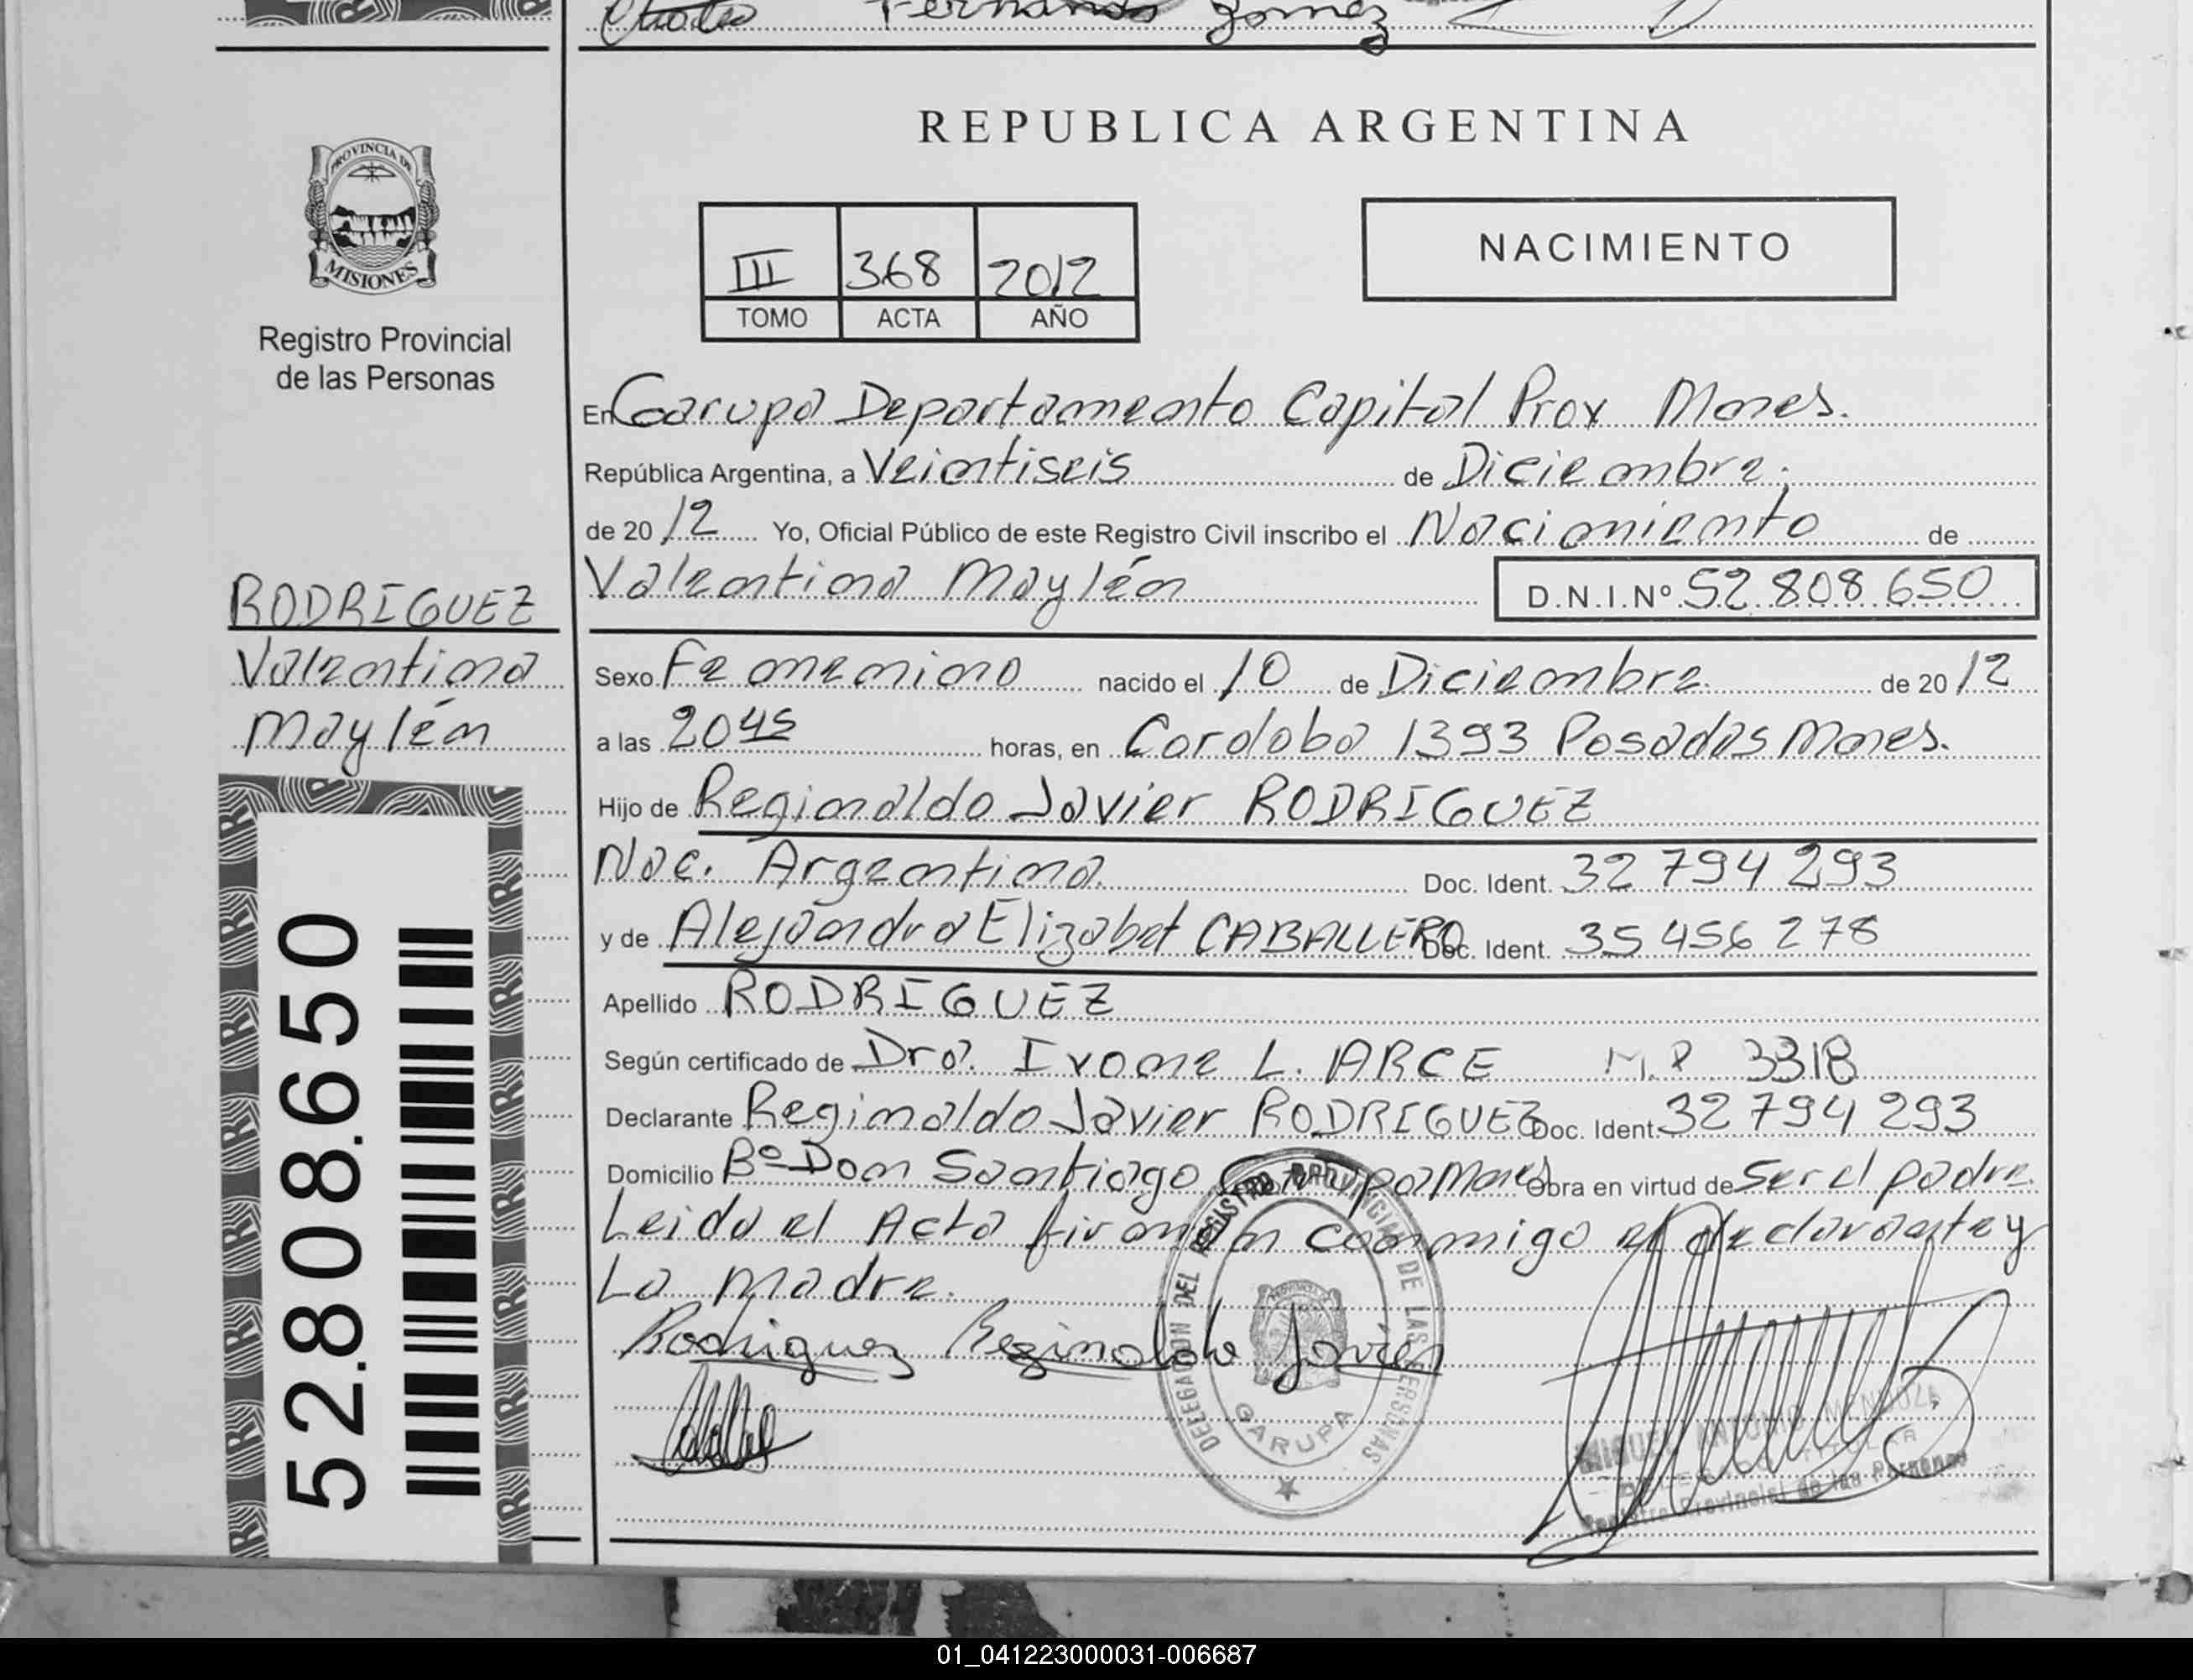 Fernando Gomez
REPUBLICA ARGENTINA
PROVINCIA DE
MISIONES
Registro Provincial
de las Personas
NACIMIENTO
III 368 2012
TOMO ACTA AÑO
En Garupa Departamento Capital Prov Mnes.
República Argentina, a Veintiseis de Diciembre.
de 20 12 Yo, Oficial Público de este Registro Civil inscribo el Nacimiento de
Valentina Maylén D.N.I.Nº 52 808 650
RODRIGUEZ
Valentina
Maylén
Sexo Femenino nacido el 10 de Diciembre de 20 12
a las 20 45 horas, en Cordoba 1393 Posadas Mnes.
Hijo de Reginaldo Javier RODRIGUEZ
Nac. Argentina Doc. Ident. 32 794 293
y de Alejandra Elizabet CABALLERO Doc. Ident. 35 456 278
Apellido RODRIGUEZ
Según certificado de Dra. Ivone L. ARCE M.P 3318
Declarante Reginaldo Javier RODRIGUEZ Doc. Ident. 32 794 293
Domicilio Bº Don Santiago Garupa Mnes Obra en virtud de Ser el padre.
Leido el Acta firman conmigo el declarante y
La madre.
Rodriguez Reginaldo Javier
52.808.650
DELEGACION DEL REGISTRO PROVINCIAL DE LAS PERSONAS
GARUPA
MIGUEL ANTONIO MENDOZA
TITULAR
Registro Provincial de las Personas
01_041223000031-006687